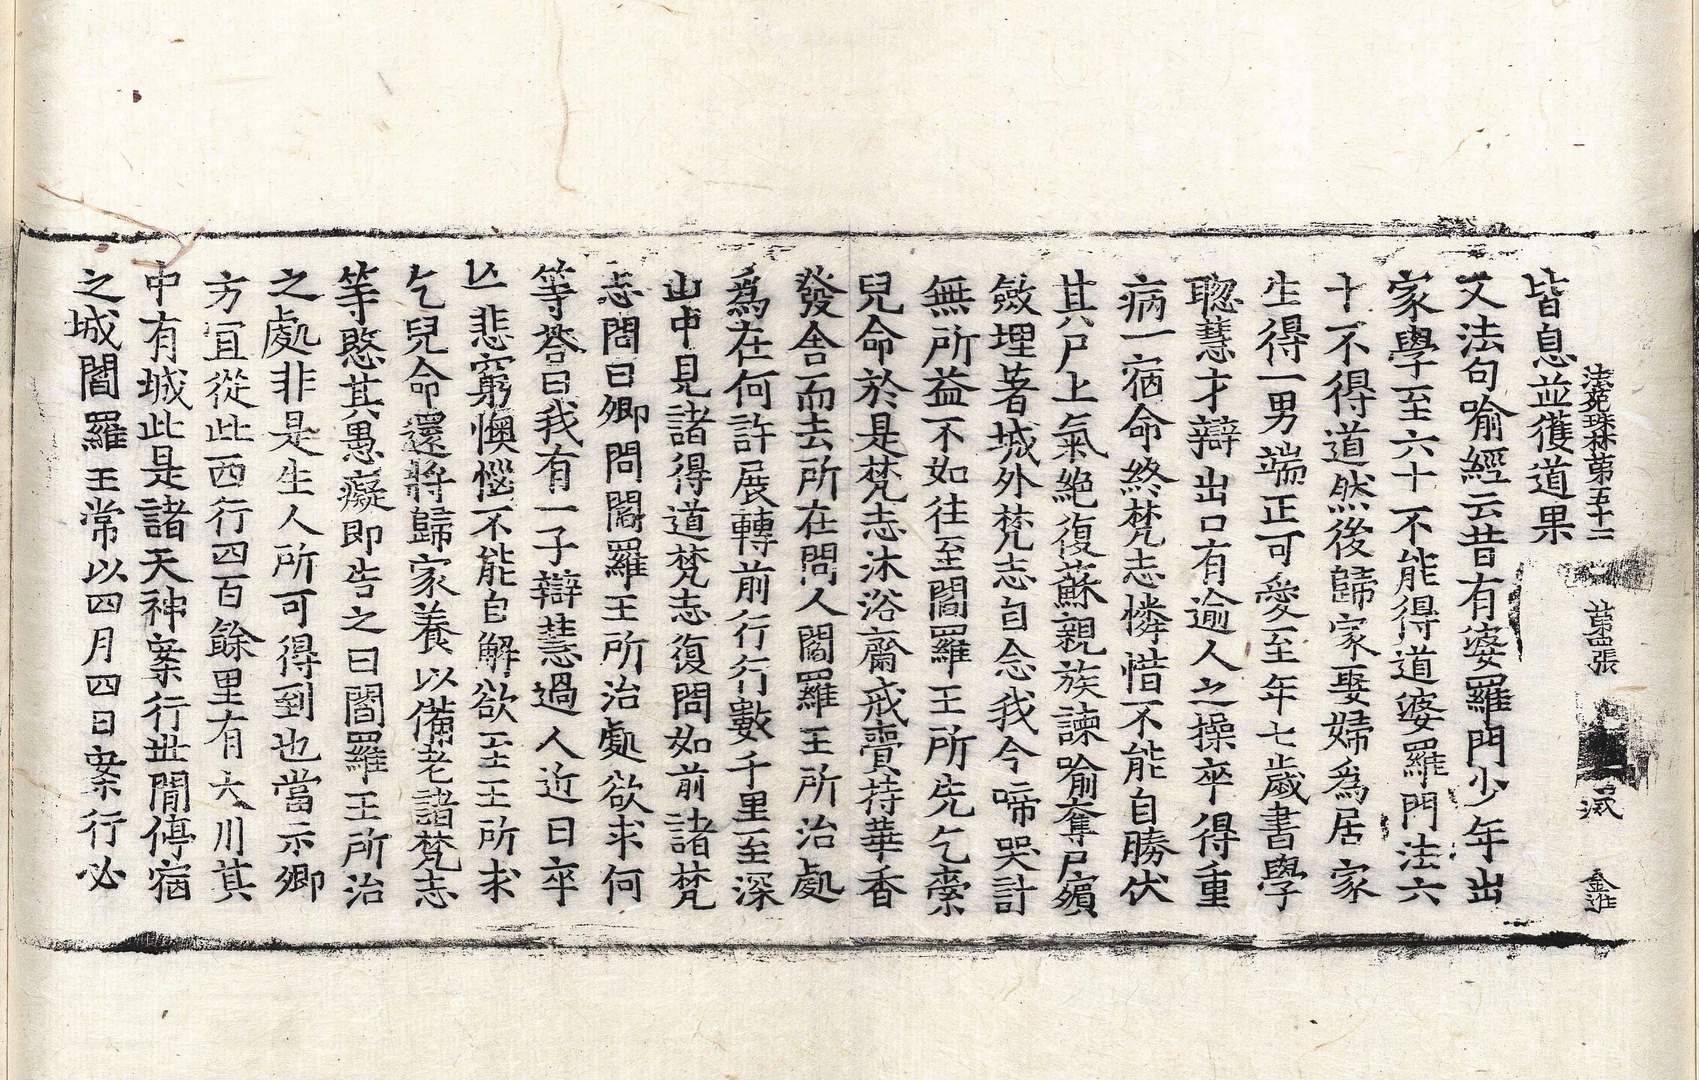 法苑珠林第五十二 第四張 咸 金進
皆息並獲道果
又法句喻經云昔有婆羅門少年出
家學至六十不能得道婆羅門法六
十不得道然後歸家娶婦爲居家
生得一男端正可愛至年七歲書學
聦慧才辯出口有逾人之操卒得重
病一宿命終梵志憐惜不能自勝伏
其尸上氣絶復蘇親族諫喻奪尸殯
斂埋著城外梵志自念我今啼哭計
無所益不如往至閻羅王所先乞索
兒命於是梵志沐浴齋戒賷持華香
發舍而去所在問人閻羅王所治處
爲在何許展轉前行行數千里至深
山中見諸得道梵志復問如前諸梵
志問曰卿問閻羅王所治處欲求何
等荅曰我有一子辯慧過人近日卒
亾悲窮懊惱不能自解欲至王所求
乞兒命還將歸家養以備老諸梵志
等愍其愚癡即告之曰閻羅王所治
之處非是生人所可得到也當示卿
方宜從此西行四百餘里有大川其
中有城此是諸天神案行世閒停宿
之城閻羅王常以四月四日案行必